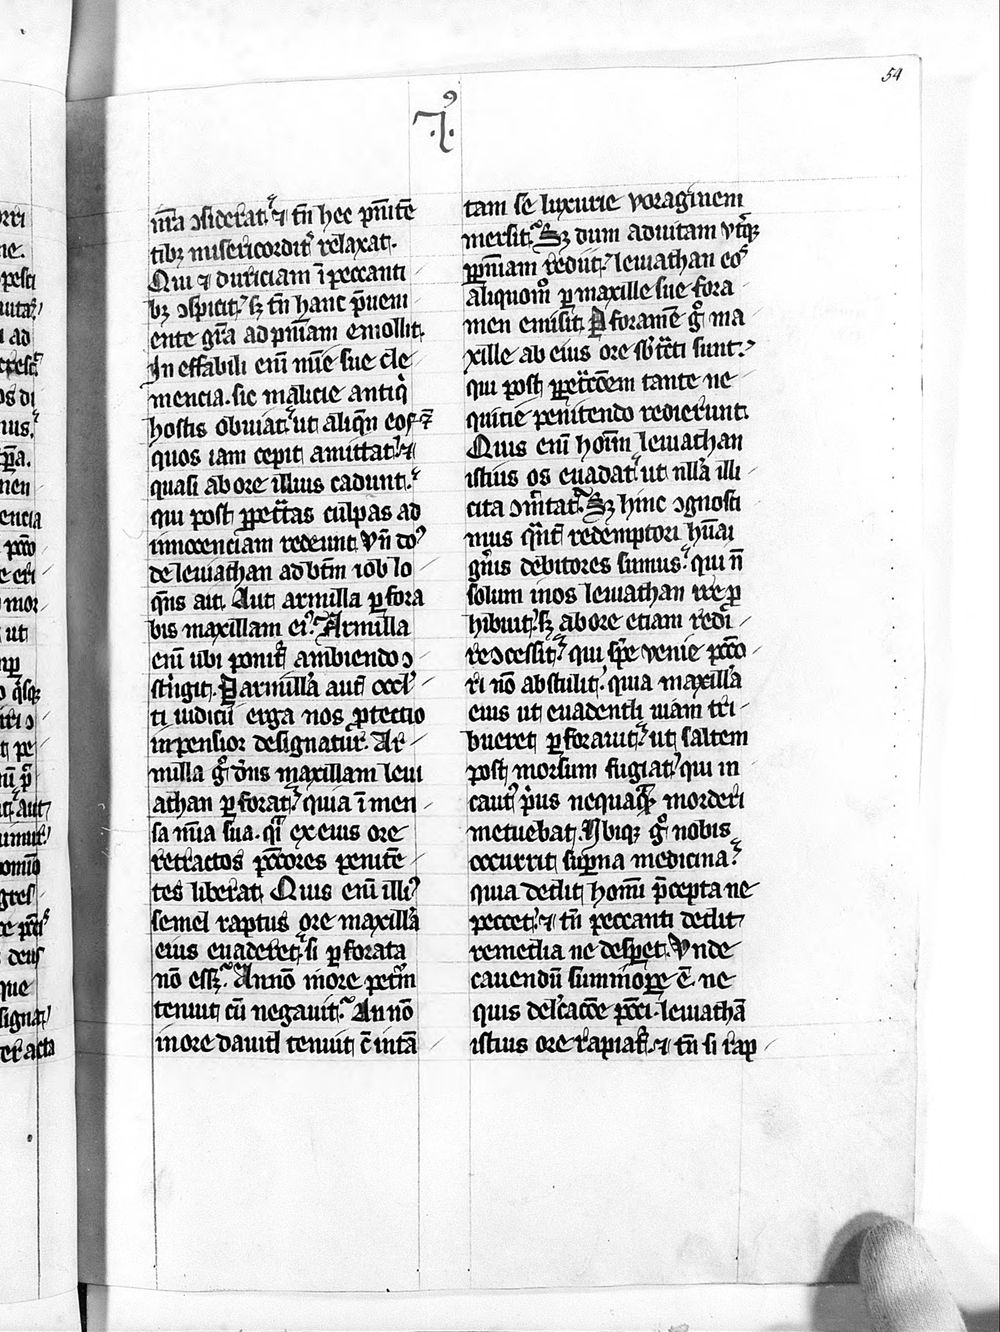 54
.i.
nr̄a ↄsiderat. ⁊ tn̄ hec pn̄itē
tibꝫ misericordit᷒ relaxat.
Qui ⁊ duriciam ī peccanti
bꝫ ↄspicit. sꝫ tn̄ hanc p̄ueni
ente gr̄a ad pn̄iam emollit.
In effabili eni᷒ mīe sue cle
mencia. sic malicie antiqͥ
hostis obuiat. ut aliqn̄ eos ⁊
quos iam cepit amittat. ⁊
quasi ab ore illius cadunt.
qui post ꝑpet̄tas culpas ad
innocenciam redeunt. Vn̄ do
de leuiathan ad bt̄m iob lo
qn̄s ait. Aut armilla ꝑfora
bis maxillam eiꝰ. Armilla
eni᷒ ubi ponit᷒ ambiendo ↄ
stringit. Ꝑ armillā aut̄ occl᷒
ti iudicii erga nos ꝓtectio
inpensior designatur. Ar
milla gͦ dn̄s maxillam leui
athan ꝑforat. quia ī men
sa mīa sua. qͥ ex eius ore
retractos pc̄cores penitē
tes liberat. Quis eni᷒ illiꝰ
semel raptus ore maxillā
eius euaderet. si ꝑforata
nō essꝫ. An nō in ore petrum
tenuit cū negauit. An nō
in ore dauid tenuit c̄ in tā
tam se luxurie voraginem
mersit. Sꝫ dum ad uitam utͥqꝫ
ꝑ pn̄iam rediit. leuiathan eoꝰ
aliquomō ꝑ maxille sue fora
men emisit. Ꝑ foramē gͦ ma
xille ab eius ore sb̄tc̄ti sunt.
qui post ꝑpet̄cōem tante ne
quitie penitendo redierunt.
Quis eni᷒ hoīm leuiathan
istius os euadat. ut nulla illi
cita ↄmittat. Sꝫ hinc ↄgnosci
mus qn̄t᷒ redemptori hūai
gn̄is debitores sumus. qui n̄
solum in os leuiathan ire ꝓ
hibuit. sꝫ ab ore etiam redi
re ↄcessit. qui spē venie pc̄co
ri nō abstulit. quia maxillā
eius ut euadendi uiam tri
bueret ꝑforauit. ut saltem
post morsum fugiat. qui in
caut᷒ pͥus nequaꝗ̄ morderi
metuebat. Vbiqꝫ gͦ nobis
occurrit supͥna medicina.
quia dedit homi᷒ p̄cepta ne
peccet. ⁊ tn̄ peccanti dedit
remedia ne desꝑet. Vnde
cauendū summoꝑe ē. ne
quis delc̄acōe pc̄ci. leuiathā
istius ore rapiat᷒. ⁊ tn̄ si rap